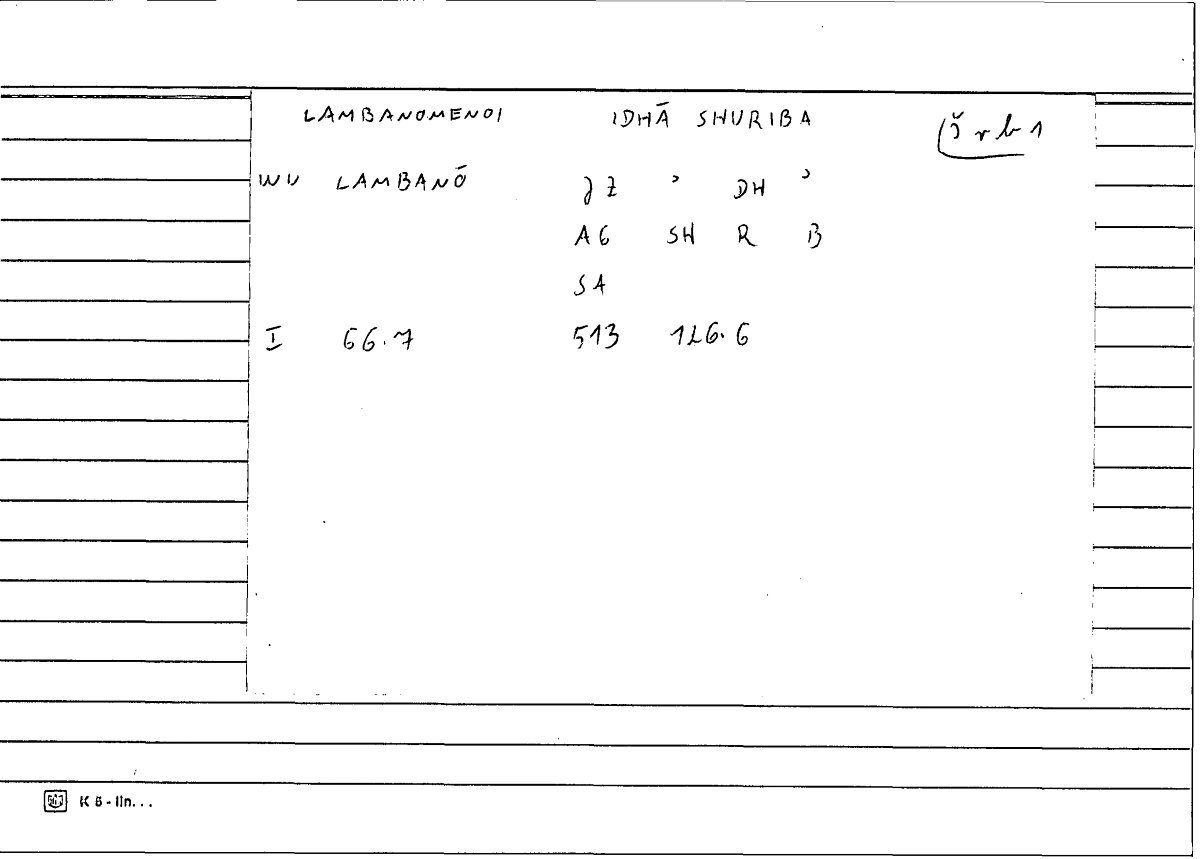 LAMBANOMENOI IDHĀ SHURIBA šrb1
WV LAMBANŌ ZZ ʾ DH ʾ
AG SH R B
SA
I 66.7 513 126.6
K 6-lin...